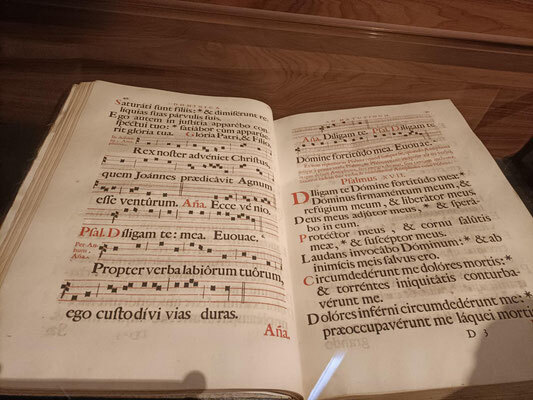 DOMINICA
Saturáti sunt filiis: * & dimisérunt re-
líquias suas párvulis suis.
Ego autem in justítia apparébo con-
spéctui tuo: * satiábor cùm apparúe-
rit glória tua. Glória Patri, & Fílio.
Rex noster advéniet Christus,
quem Joánnes prædicávit Agnum
esse ventúrum. Aña. Ecce vénio.
Psal. Díligam te: mea. Euouae.
Per Annum, Aña.
Propter verba labiórum tuórum,
ego custodívi vias duras.
Aña.
Aña. Díligam te. Psal. Díligam te
Dómine fortitúdo mea. Euouae.
Psalmus XVII.
Díligam te Dómine fortitúdo mea: *
Dóminus firmaméntum meum, &
refúgium meum, & liberátor meus.
Deus meus adjútor meus, * & sperá-
bo in eum.
Protéctor meus, & cornu salútis
meæ, * & suscéptor meus.
Laudans invocábo Dóminum: * & ab
inimícis meis salvus ero.
Circumdedérunt me dolóres mortis: *
& torréntes iniquitátis conturba-
vérunt me.
Dolóres inférni circumdedérunt me: *
præoccupavérunt me láquei mortis
D 3